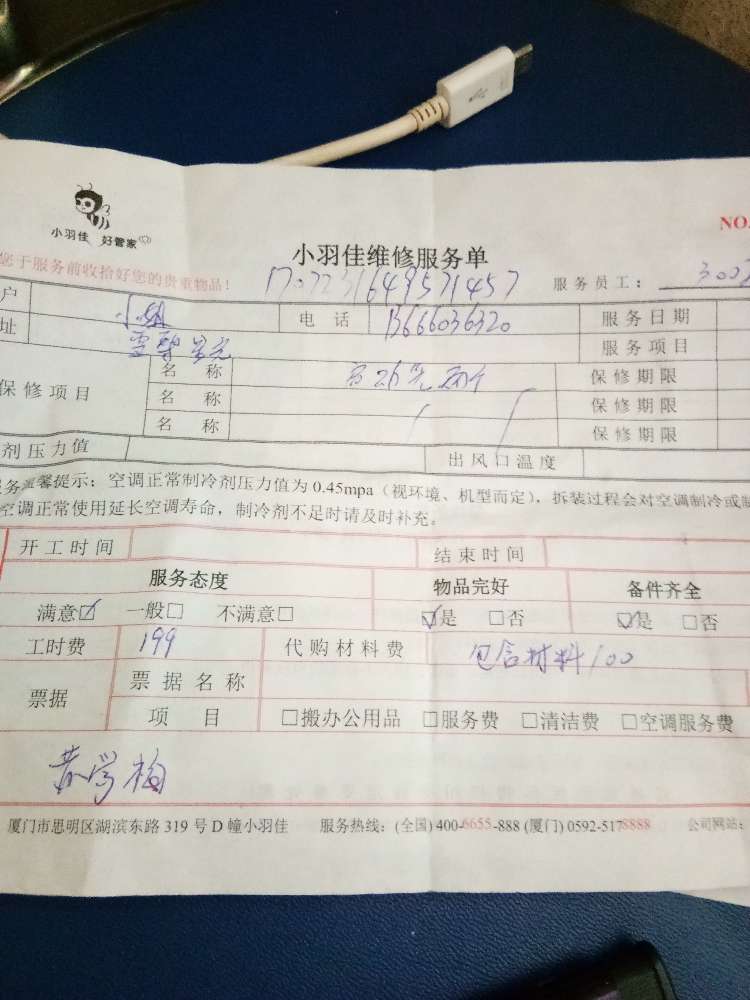 小羽佳 好管家
NO.
小羽佳维修服务单
您于服务前收拾好您的贵重物品！
服务员工：
户
电 话
服务日期
址
服务项目
保修项目
名 称
保修期限
名 称
保修期限
名 称
保修期限
剂压力值
出风口温度
务温馨提示：空调正常制冷剂压力值为 0.45mpa（视环境、机型而定），拆装过程会对空调制冷或制
空调正常使用延长空调寿命，制冷剂不足时请及时补充。
开工时间
结束时间
服务态度
物品完好
备件齐全
满意☑ 一般□ 不满意□
☑是 □否
☑是 □否
工时费
199
代购材料费
包含材料100
票据
票据名称
项 目
□搬办公用品 □服务费 □清洁费 □空调服务费
厦门市思明区湖滨东路 319 号 D 幢小羽佳 服务热线：(全国) 400-6655-888 (厦门) 0592-5178888 公司网站：